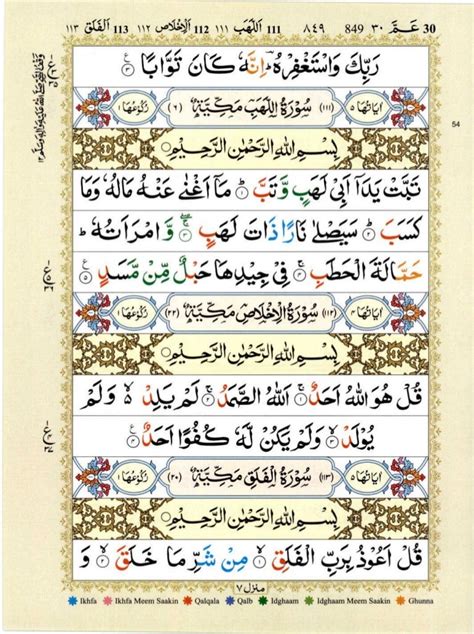 113 الفلق ١١٣ 112 الاخلاص ١١٢ 111 اللهب ١١١ ٨٤٩ 849 ٣٠ عم 30
رَبِّكَ وَاسْتَغْفِرْهُ ؕ اِنَّهٗ كَانَ تَوَّابًا ۝۳
اٰيَاتُهَا ۵ (۱۱۱) سُوْرَةُ اللَّهَبِ مَكِّيَّةٌ (۶) رُكُوْعُهَا ۱
بِسْمِ اللّٰهِ الرَّحْمٰنِ الرَّحِيْمِ
تَبَّتْ يَدَاۤ اَبِيْ لَهَبٍ وَّتَبَّ ۝۱ مَاۤ اَغْنٰى عَنْهُ مَالُهٗ وَمَا
كَسَبَ ۝۲ سَيَصْلٰى نَارًا ذَاتَ لَهَبٍ ۝۳ وَّامْرَاَتُهٗ ؕ
حَمَّالَةَ الْحَطَبِ ۝۴ فِيْ جِيْدِهَا حَبْلٌ مِّنْ مَّسَدٍ ۝۵
اٰيَاتُهَا ۴ (۱۱۲) سُوْرَةُ الْاِخْلَاصِ مَكِّيَّةٌ (۲۲) رُكُوْعُهَا ۱
بِسْمِ اللّٰهِ الرَّحْمٰنِ الرَّحِيْمِ
قُلْ هُوَ اللّٰهُ اَحَدٌ ۝۱ اَللّٰهُ الصَّمَدُ ۝۲ لَمْ يَلِدْ ۙ وَلَمْ
يُوْلَدْ ۝۳ وَلَمْ يَكُنْ لَّهٗ كُفُوًا اَحَدٌ ۝۴
اٰيَاتُهَا ۵ (۱۱۳) سُوْرَةُ الْفَلَقِ مَكِّيَّةٌ (۲۰) رُكُوْعُهَا ۱
بِسْمِ اللّٰهِ الرَّحْمٰنِ الرَّحِيْمِ
قُلْ اَعُوْذُ بِرَبِّ الْفَلَقِ ۝۱ مِنْ شَرِّ مَا خَلَقَ ۝۲ وَ
منزل ٧
54
Ikhfa Ikhfa Meem Saakin Qalqala Qalb Idghaam Idghaam Meem Saakin Ghunna